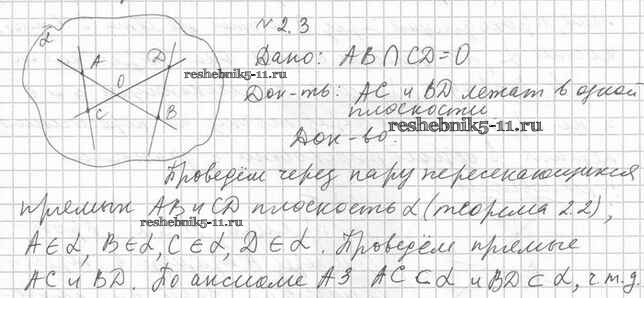 № 2.3
Дано: AB ∩ CD = O
Док-ть: AC и BD лежат в одной
плоскости
Док-во:
Проведём через пару пересекающихся
прямых AB и CD плоскость α (теорема 2.2),
A ∈ α, B ∈ α, C ∈ α, D ∈ α. Проведём прямые
AC и BD. По аксиоме A3 AC ⊂ α и BD ⊂ α, ч.т.д.
α
A
D
O
C
B
reshebnik5-11.ru
reshebnik5-11.ru
reshebnik5-11.ru